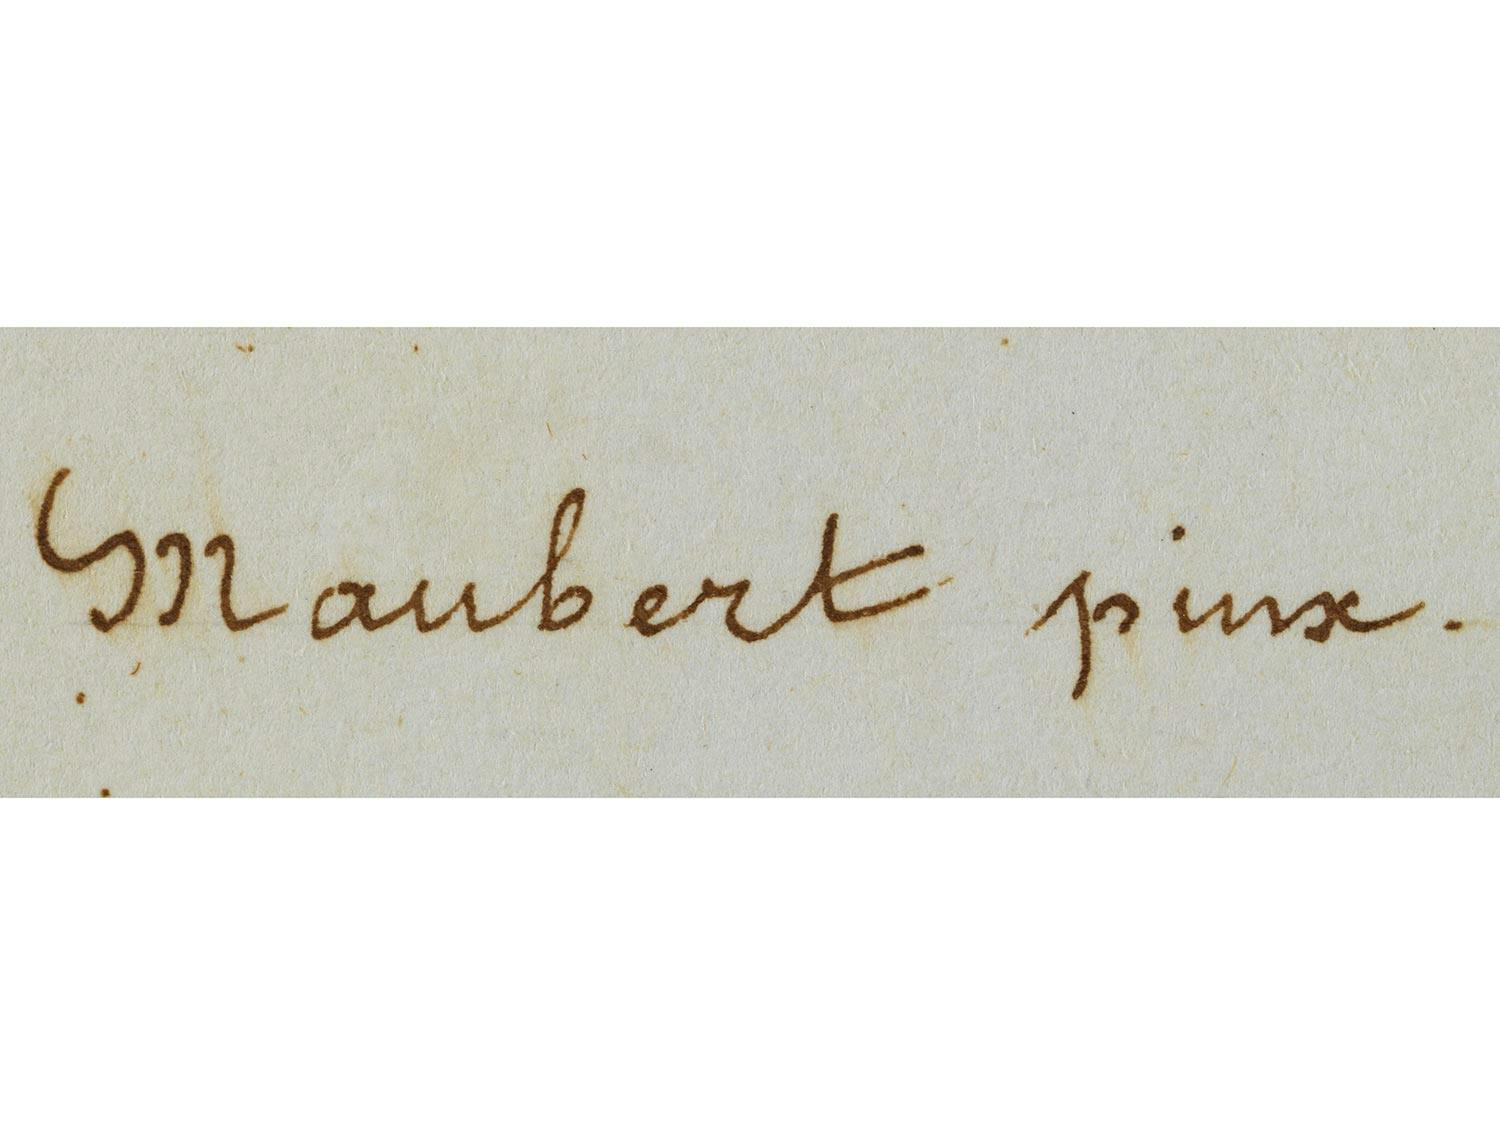 Maubert pinx.